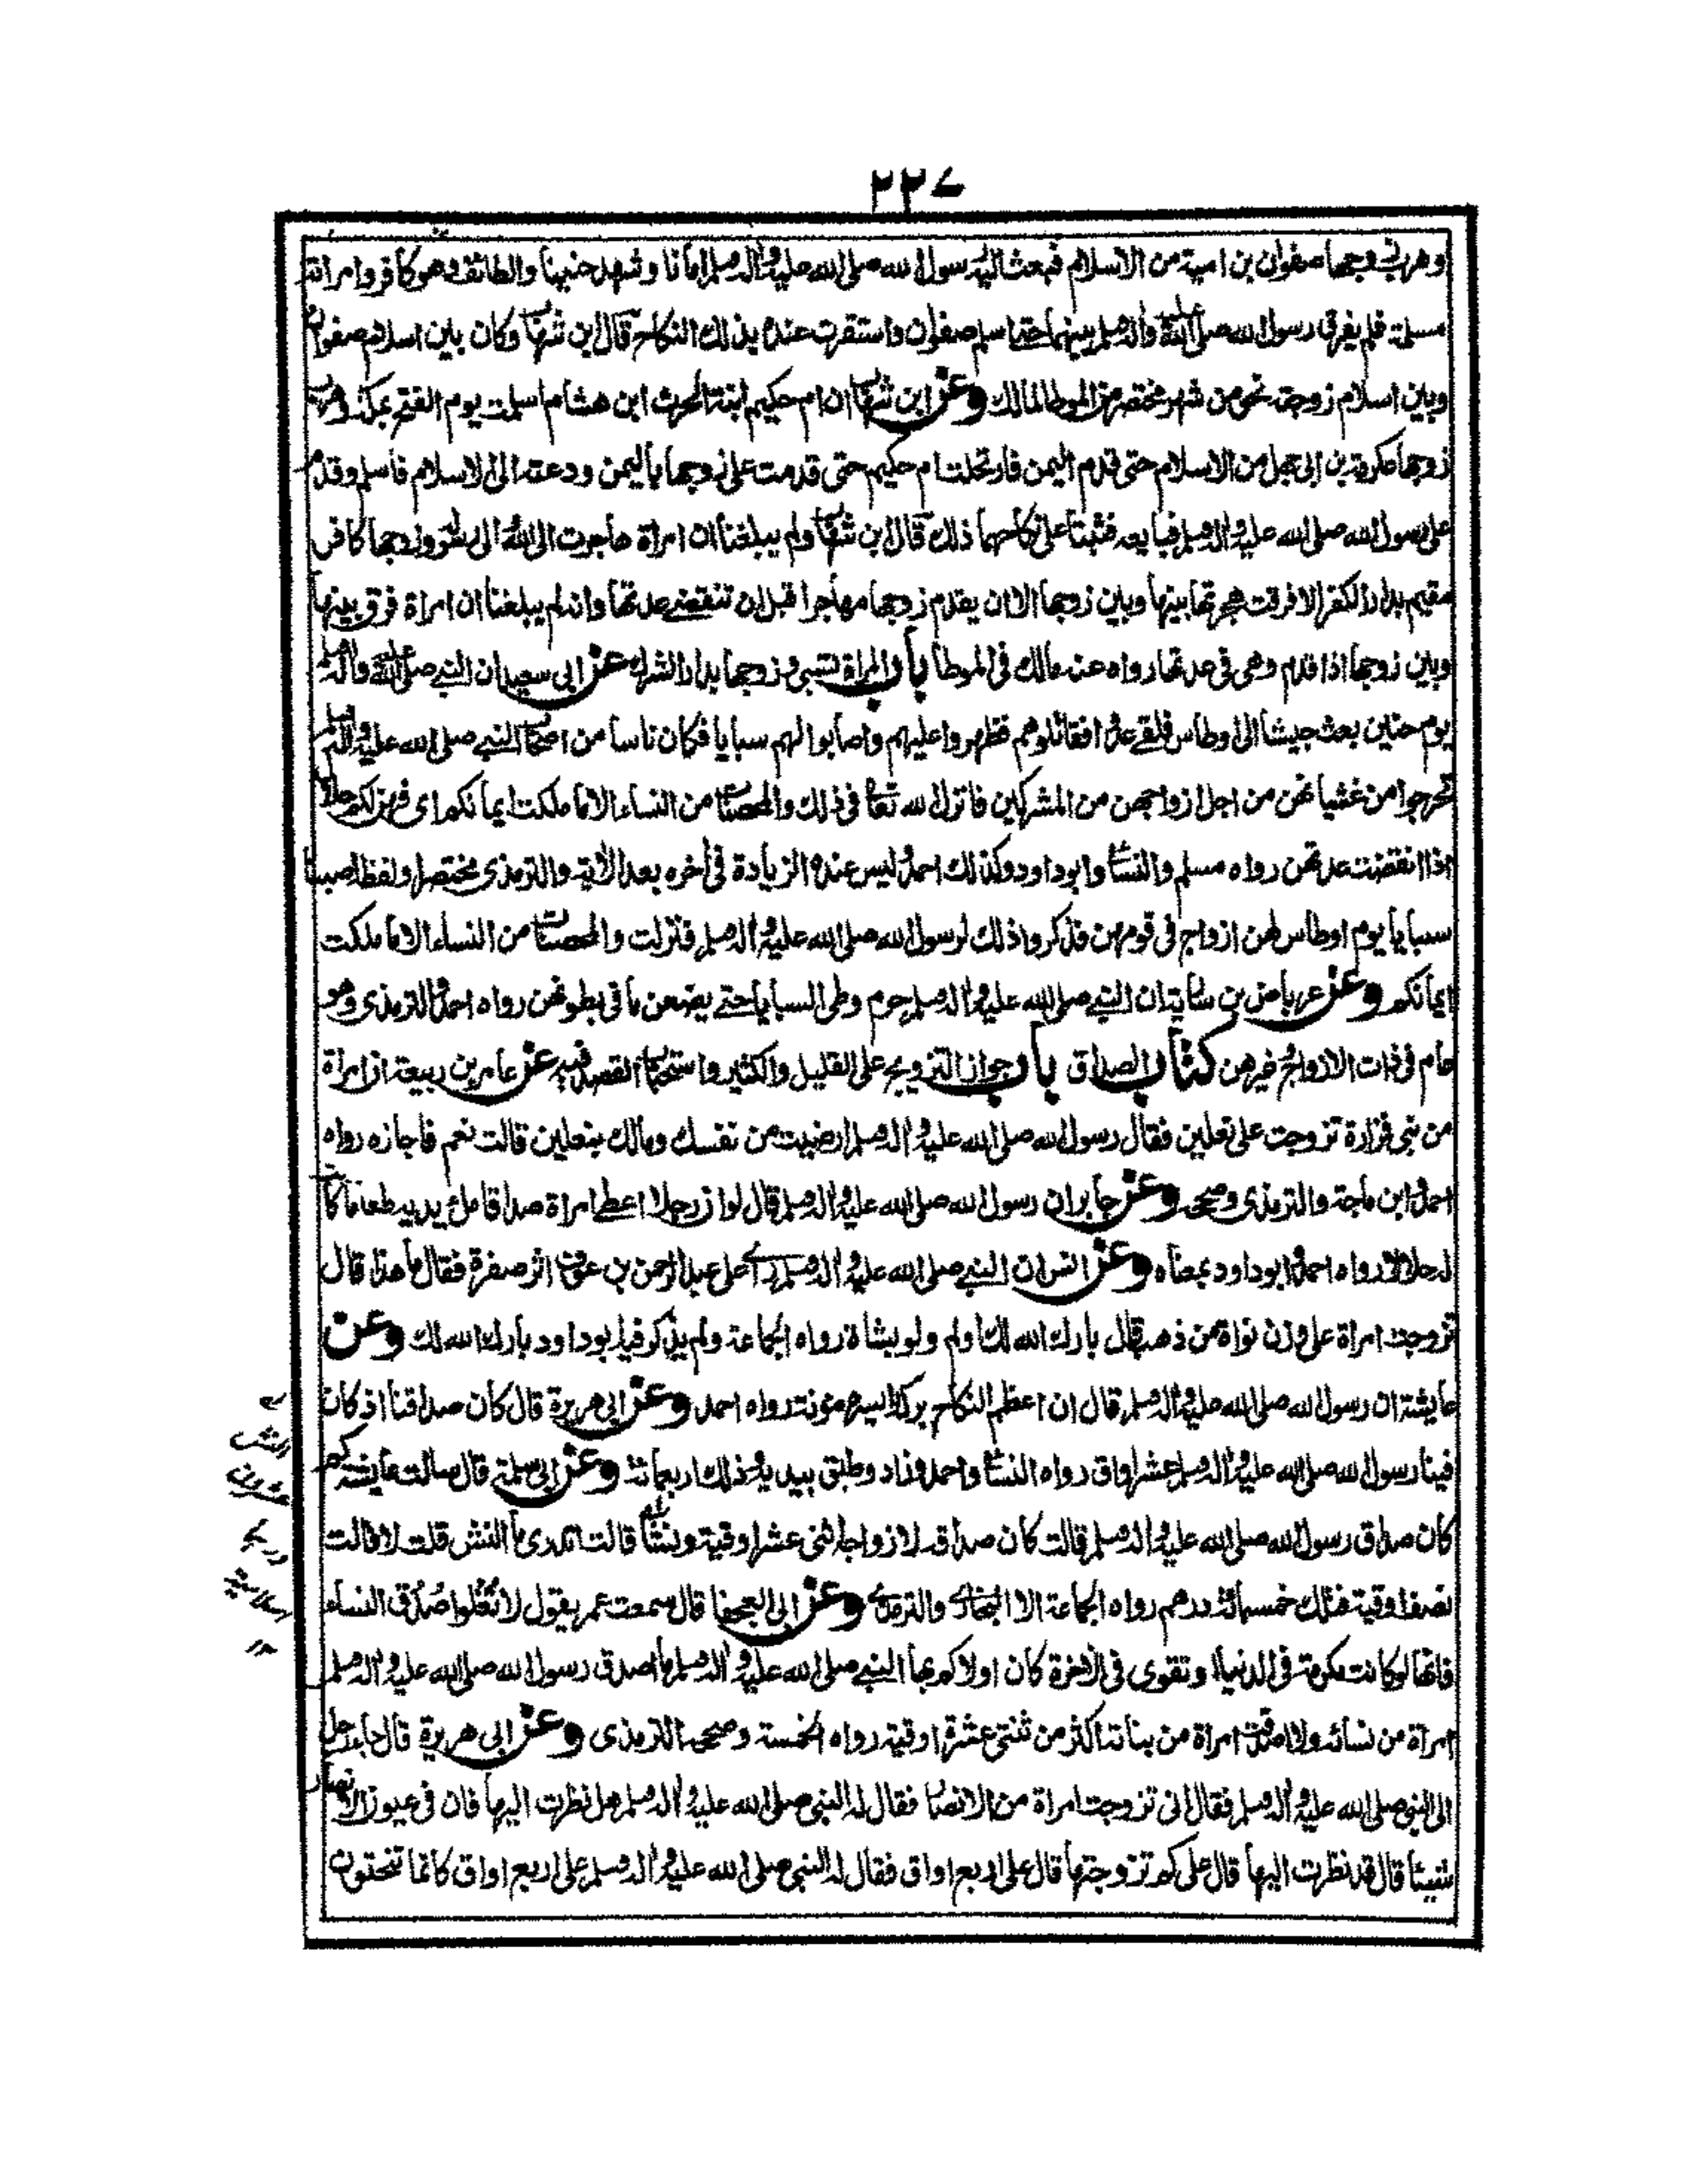 ٢٢٧
وهرب زوجها صفوان بن امية من الاسلام فبعث اليه رسول الله صلى الله عليه واله وسلم امانا وشهد حنينا والطائف وهو كافر وامراته
مسلمة فلم يفرق رسول الله صلى الله عليه واله وسلم بينهما حتى اسلم صفوان واستقرت عنده بذلك النكاح قال ابن شهاب وكان بين اسلام صفوان
وبين اسلام زوجته نحو من شهر مختصر من الموطا لمالك وعن ابن شهاب ان ام حكيم ابنة الحرث ابن هشام اسلمت يوم الفتح بمكة وهرب
زوجها عكرمة بن ابى جهل من الاسلام حتى قدم اليمن فارتحلت ام حكيم حتى قدمت على زوجها باليمن ودعته الى الاسلام فاسلم وقدم
على رسول الله صلى الله عليه واله وسلم فبايعه فثبتا على نكاحهما ذلك قال ابن شهاب ولم يبلغنا ان امراة هاجرت الى الله والى رسوله وزوجها كافر
مقيم بدار الكفر الا فرقت هجرتها بينها وبين زوجها الا ان يقدم زوجها مهاجرا قبل ان تنقضى عدتها وانه لم يبلغنا ان امراة فرق بينها
وبين زوجها اذا قدم وهى فى عدتها رواه عنه مالك فى الموطا باب المراة تسبى وزوجها بدار الشرك عن ابى سعيد ان النبى صلى الله عليه واله وسلم
يوم حنين بعث جيشا الى اوطاس فلقى عدوا فقاتلوهم فظهروا عليهم واصابوا لهم سبايا فكان ناسا من اصحاب النبى صلى الله عليه واله وسلم
تحرجوا من غشيانهن من اجل ازواجهن من المشركين فانزل الله تعالى فى ذلك والمحصنات من النساء الا ما ملكت ايمانكم اى فهن لكم حلال
اذا انقضت عدتهن رواه مسلم والنسائى وابو داود وكذلك احمد وليس عنده الزيادة فى اخره بعد الاية والترمذى مختصرا ولفظه اصبنا
سبايا يوم اوطاس لهن ازواج فى قومهن فذكروا ذلك لرسول الله صلى الله عليه واله وسلم فنزلت والمحصنات من النساء الا ما ملكت
ايمانكم وعن عرباض بن سارية ان النبى صلى الله عليه واله وسلم حرم وطى السبايا حتى يضعن ما فى بطونهن رواه احمد والترمذى وهو
عام فى ذوات الازواج وغيرهن كتاب الصداق باب جواز التزويج على القليل والكثير واستحباب القصد فيه عن عامر بن ربيعة ان امراة
من بنى فزارة تزوجت على نعلين فقال رسول الله صلى الله عليه واله وسلم ارضيت من نفسك ومالك بنعلين قالت نعم فاجازه رواه
احمد وابن ماجة والترمذى وصححه وعن جابر ان رسول الله صلى الله عليه واله وسلم قال لو ان رجلا اعطى امراة صداقا ملء يديه طعاما كانت
له حلالا رواه احمد وابو داود بمعناه وعن انس ان النبى صلى الله عليه واله وسلم راى على عبد الرحمن بن عوف اثر صفرة فقال ما هذا قال
تزوجت امراة على وزن نواة من ذهب قال بارك الله لك اولم ولو بشاة رواه الجماعة ولم يذكر فيه ابو داود بارك الله لك وعن
عايشة ان رسول الله صلى الله عليه واله وسلم قال ان اعظم النكاح بركة ايسره مؤنة رواه احمد وعن ابى هريرة قال كان صداقنا اذ كان
فينا رسول الله صلى الله عليه واله وسلم عشر اواق رواه النسائى واحمد وزاد وطبق بيديه وذلك اربعمائة وعن ابى سلمة قال سالت عايشة كم
كان صداق رسول الله صلى الله عليه واله وسلم قالت كان صداقه لازواجه اثنى عشر اوقية ونشا قالت اتدرى ما النش قلت لا قالت
نصف اوقية فتلك خمسمائة درهم رواه الجماعة الا البخارى والترمذى وعن ابى العجفا قال سمعت عمر يقول لا تغلوا صدق النساء
فانها لو كانت مكرمة فى الدنيا او تقوى فى الاخرة كان اولاكم بها النبى صلى الله عليه واله وسلم ما اصدق رسول الله صلى الله عليه واله وسلم
امراة من نسائه ولا اصدقت امراة من بناته اكثر من ثنتى عشرة اوقية رواه الخمسة وصححه الترمذى وعن ابى هريرة قال جاء رجل
الى النبى صلى الله عليه واله وسلم فقال انى تزوجت امراة من الانصار فقال له النبى صلى الله عليه واله وسلم هل نظرت اليها فان فى عيون الانصار
شيئا قال قد نظرت اليها قال على كم تزوجتها قال على اربع اواق فقال له النبى صلى الله عليه واله وسلم على اربع اواق كانما تنحتون